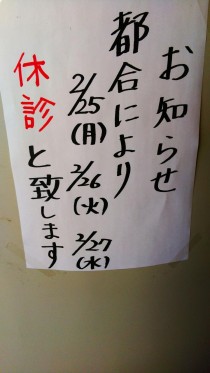 お知らせ
都合により
2/25(月) 2/26(火) 2/27(水)
休診と致します